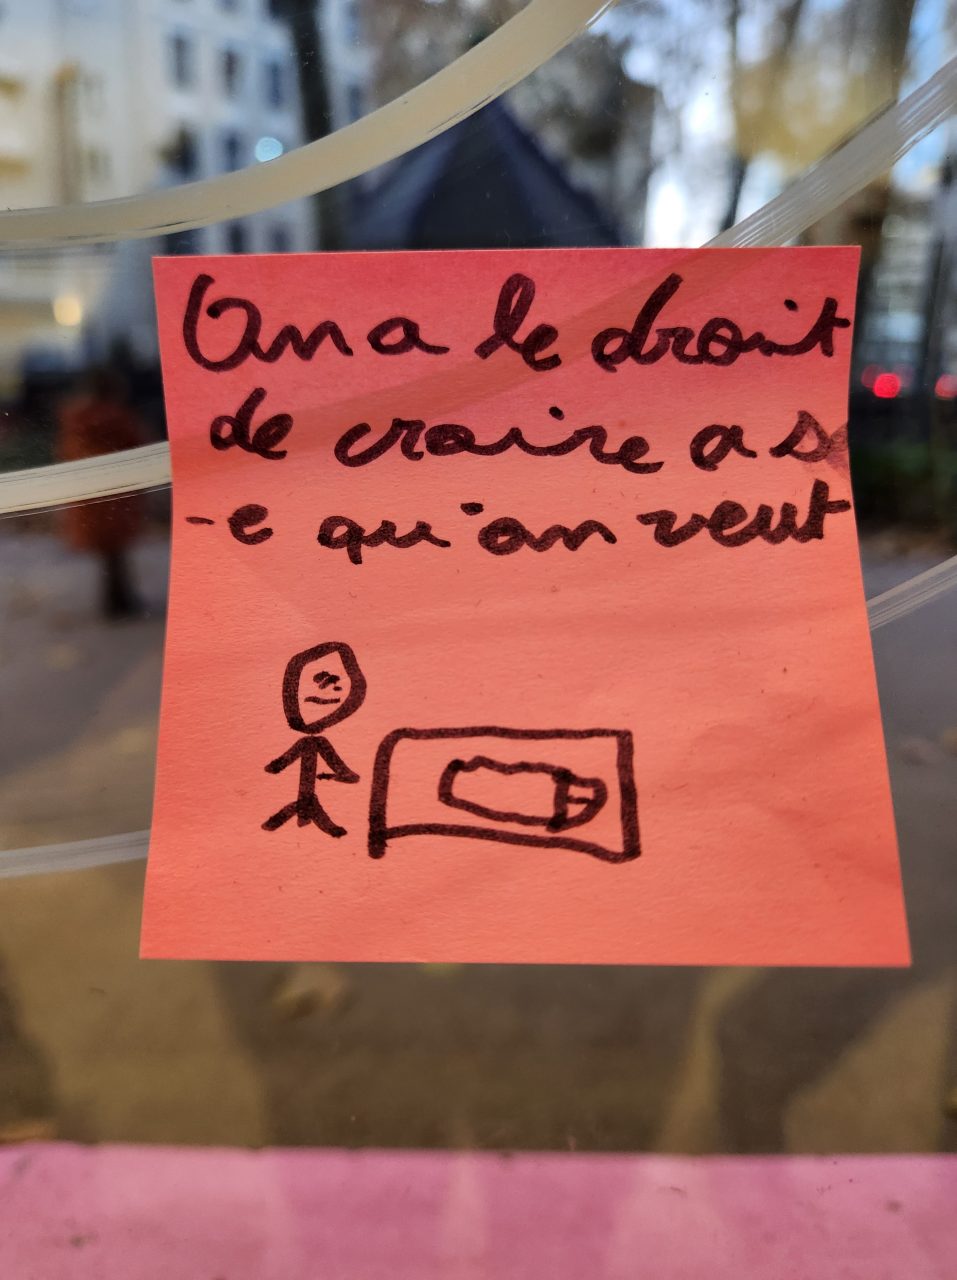 On a le droit
de croire a s
-e qu'on veut